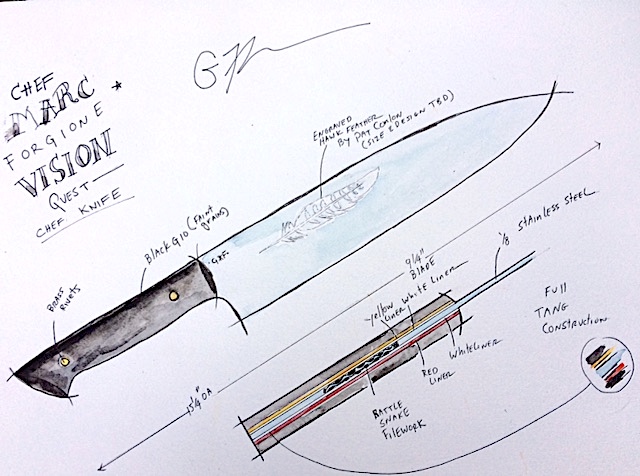 CHEF
MARC
FORGIONE
VISION
QUEST
CHEF KNIFE
ENGRAVED
HAWK FEATHER
BY PAT CONLON
(SIZE & DESIGN TBD)
BLACK G10 (FAINT
GRAINS)
BRASS
RIVETS
9 1/4"
BLADE
1/8 STAINLESS STEEL
YELLOW
LINER
WHITE LINER
FULL
TANG
CONSTRUCTION
WHITE LINER
RED
LINER
RATTLE
SNAKE
FILEWORK
15 1/4" OA